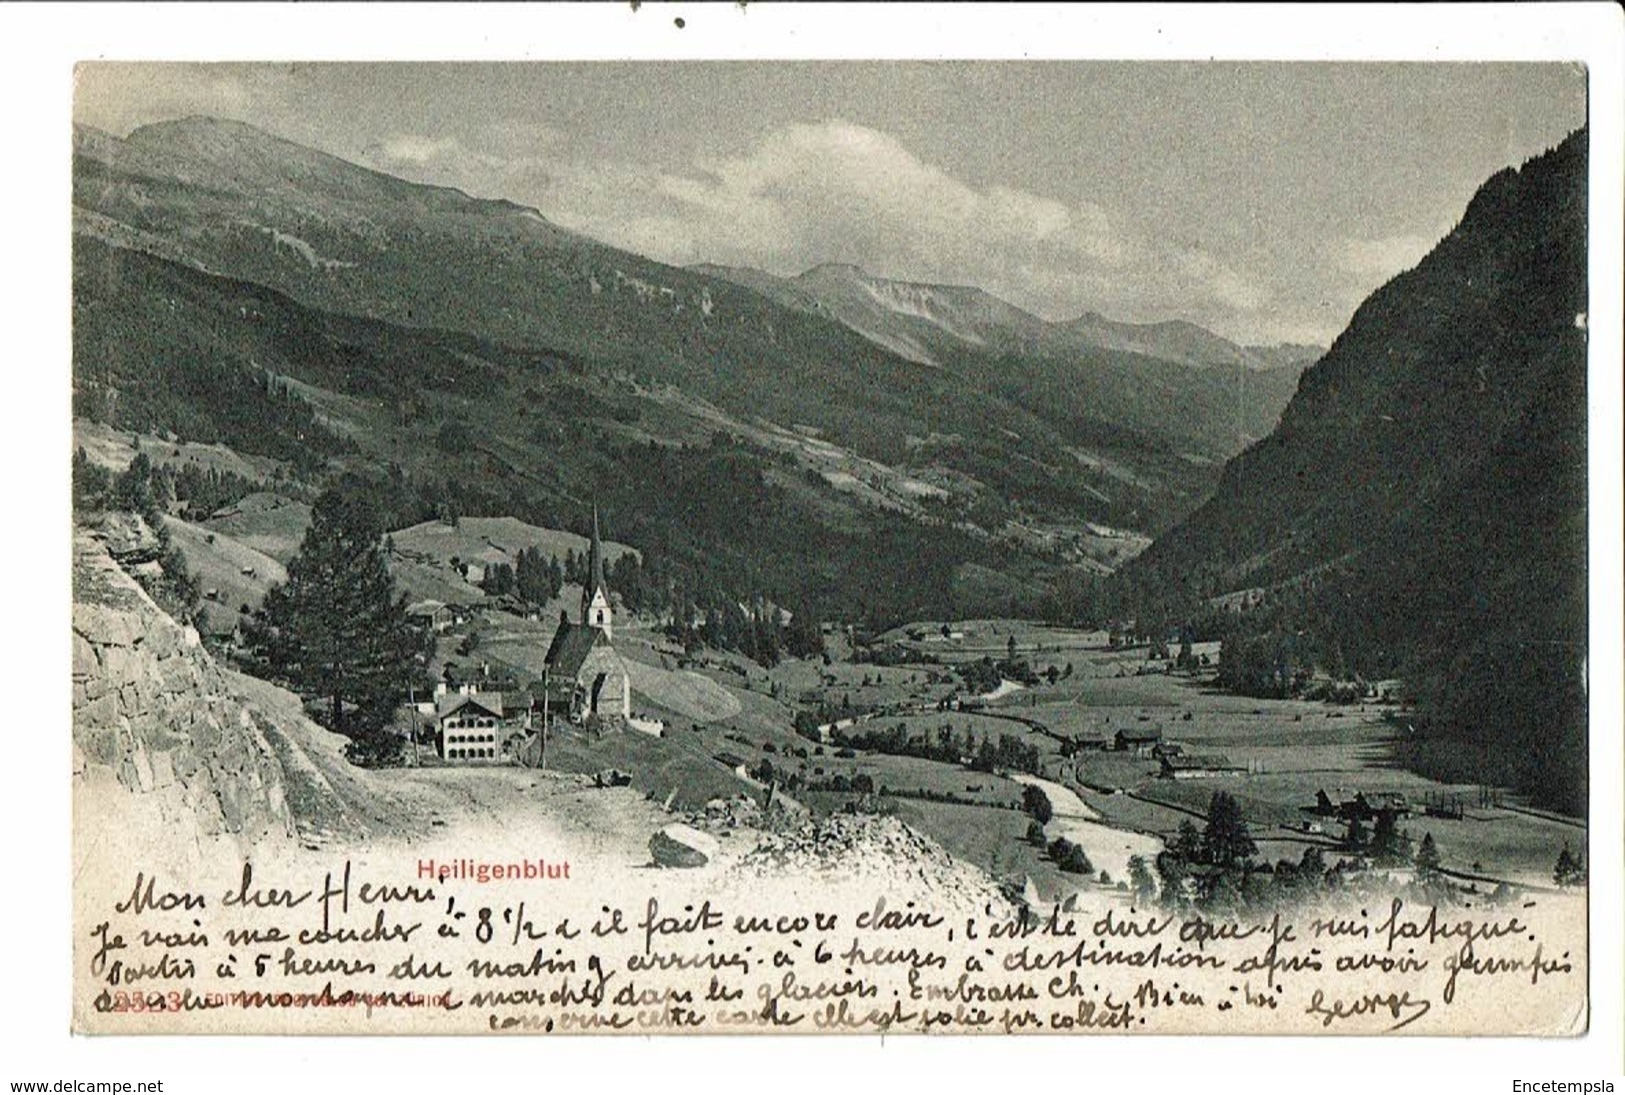 Heiligenblut
Mon cher Henri,
Je vais me coucher à 8 1/2 & il fait encore clair, c'est te dire que je suis fatigué.
Partis à 5 heures du matin & arrivés à 6 heures à destination après avoir grimpés
dans les montagnes & marchés dans les glaciers. Embrasse Ch. Bien à toi Georges
conserve cette carte elle est jolie pr. collect.
2523 EDIT
www.delcampe.net
Encetempsla